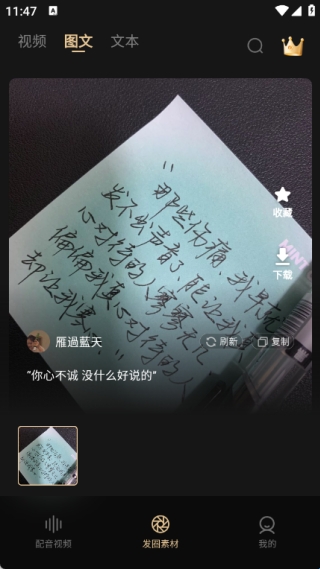 11:47
A
视频 图文 文本
"那些伤痛、我早就
发不出声音了、能让我
心对待的人寥寥无几
偏偏我真心对待的人
却让我寒
MINI
收藏
下载
雁過藍天
刷新 复制
“你心不诚 没什么好说的”
配音视频 发圈素材 我的